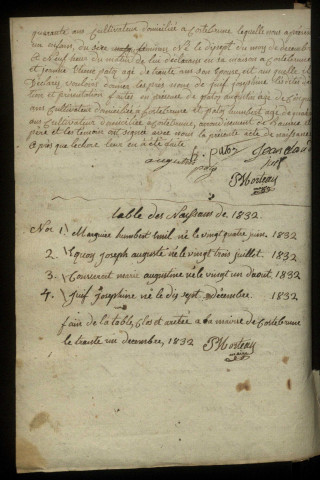 quarante ans Cultivateur domicilié a Costebrune lequelle nous a présenté
un enfant, du sexe feminin Né le dix sept du mois de decembre
a Neuf heur du matin de lui déclarant en sa maison a Costebrune
et jeandre age de trante ans son Epouse, et au quelle il
Déclare vouloir donner les prénoms de juif josephine les dites déclara
tion et présentation faites en présence de patoz augustin age de
ans cultivateur domicilié a Costebrune et patoz humbert age de
ans cultivateur domicilié a Costebrune, arrondissement de Baume,
père et les temoin ont signé avec nous le présent acte de naissance
apres que lecture leur en a été faite
augustin patoz h. Patoz jean claude juif
P Morteau maire
table des Naissance de 1832
Nos 1/ Marquie humbert emil né le vingt quatre juin. 1832
2. Equoy joseph auguste né le vingt trois juillet. 1832
3. marie augustine né le vingt un doout. 1832
4. juif josephine né le dix sept decembre. 1832
fair de la table, Clos et aretée a la mairie de Costebrune
le trante un decembre, 1832 P Morteau
maire